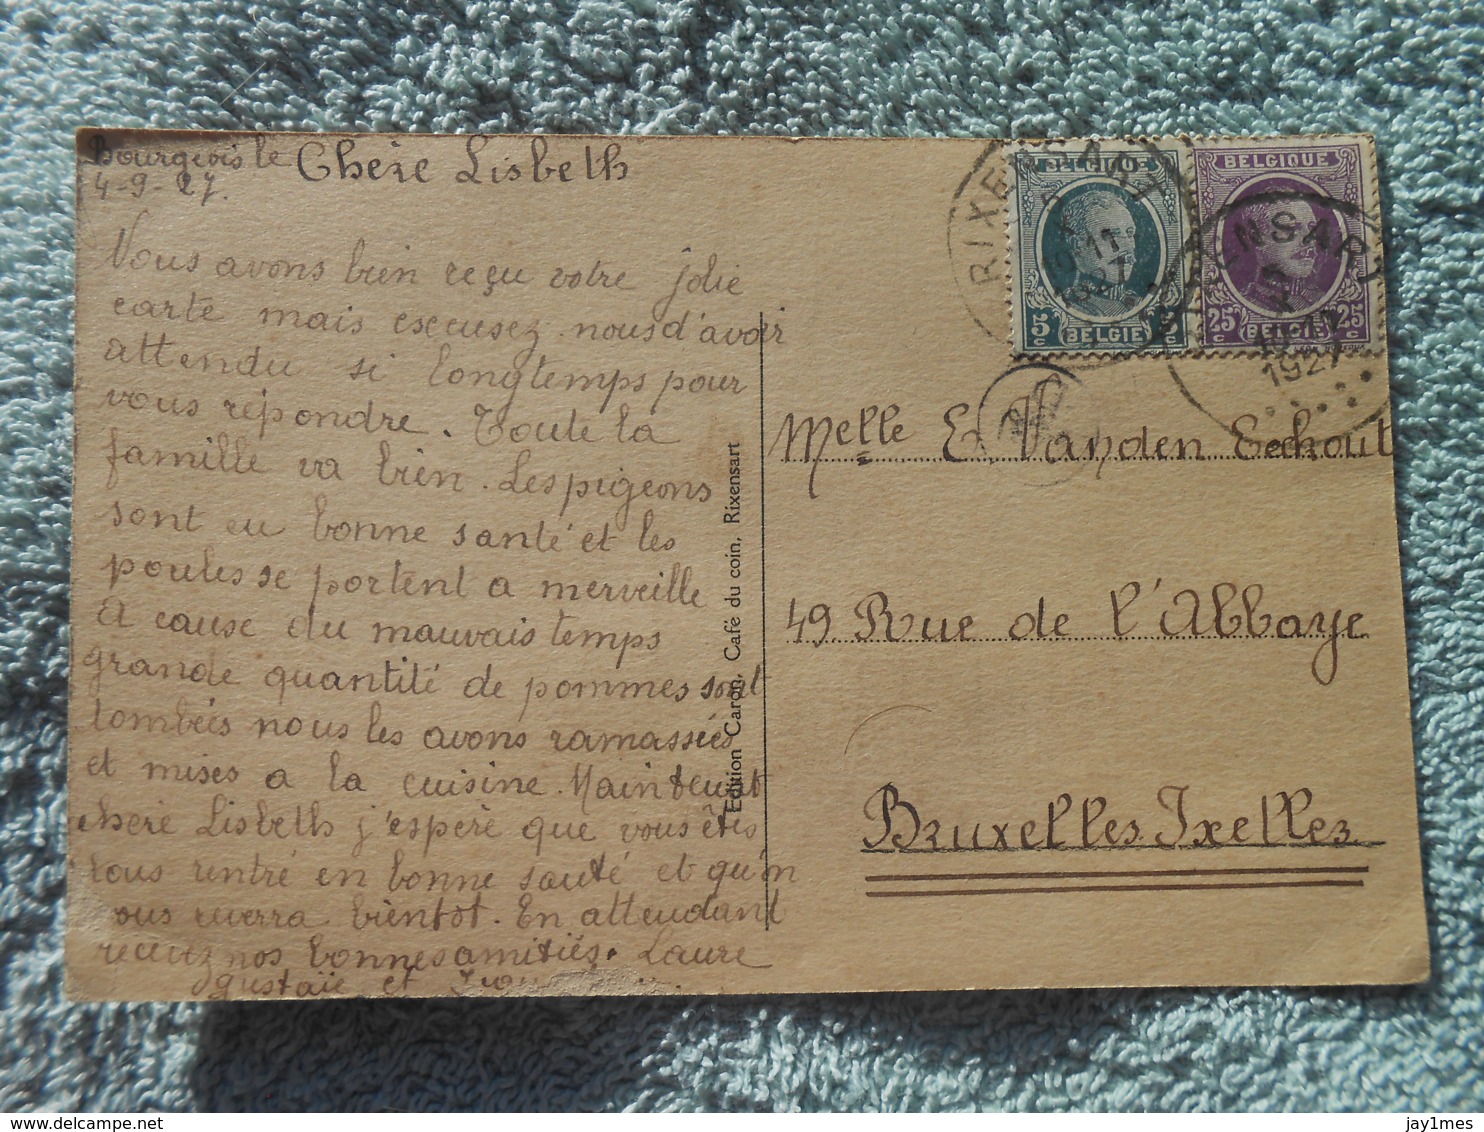 Bourgeois le
4-9-27.
Chère Lisbeth
Vous avons bien reçu votre jolie
carte mais excusez nous d'avoir
attendu si longtemps pour
vous répondre. Toute la
famille va bien. Les pigeons
sont en bonne santé et les
poules se portent a merveille
A cause du mauvais temps
grande quantité de pommes sont
tombées nous les avons ramassées
et mises a la cuisine. Maintenant
chere Lisbeth j'espère que vous êtes
tous rentré en bonne santé et qu'on
vous reverra bientot. En attendant
recevez nos bonnes amitiés. Laure
gustave et
Edition Caron, Café du coin, Rixensart
BELGIQUE
5c 5c
BELGIE
BELGIQUE
25c 25c
BELGIE
RIXENSART
11
1927
RIXENSART
1927
Melle E. Vanden Eeckout
49 Rue de l'Abbaye
Bruxelles Ixelles
jay1mes